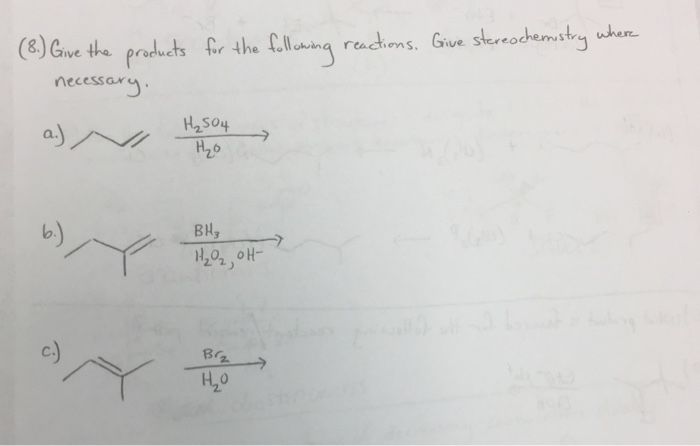 (8.) Give the products for the following reactions. Give stereochemistry where
necessary.
a.) H₂SO₄
H₂O
b.) BH₃
H₂O₂, OH-
c.) Br₂
H₂O